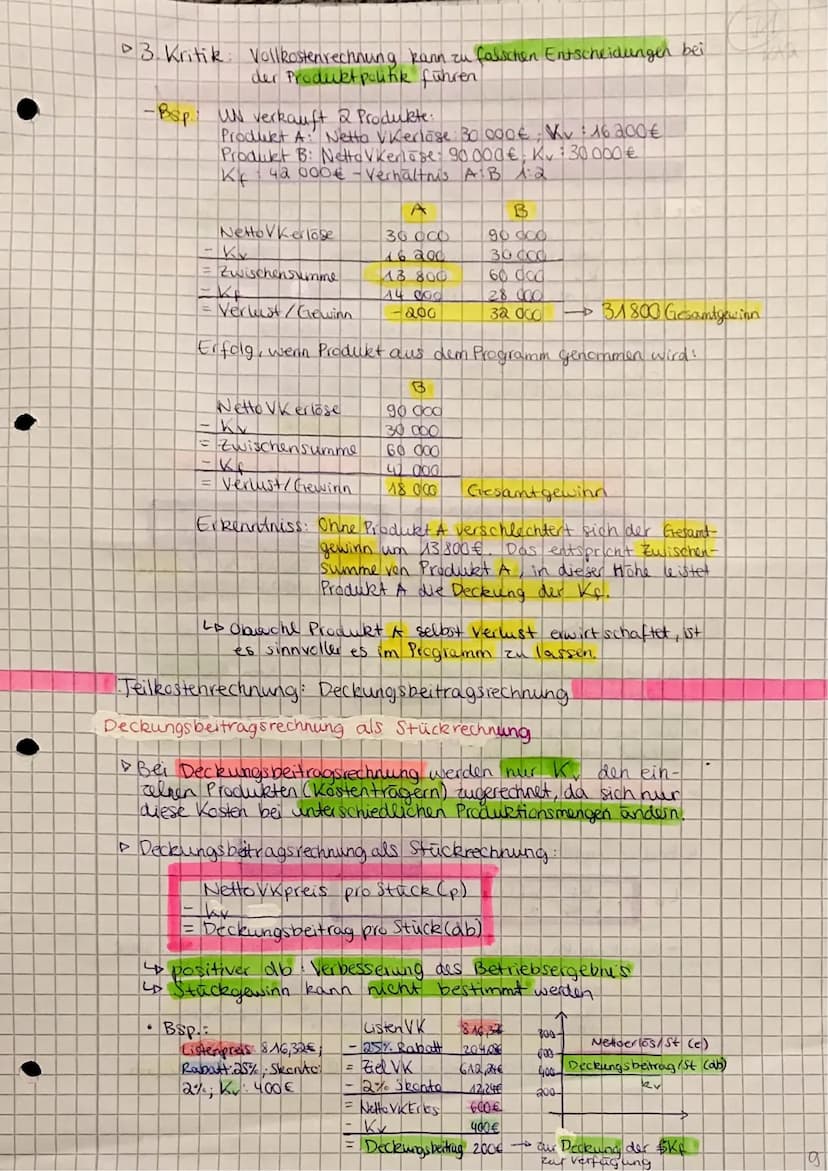 ▷ 3. Kritik: Vollkostenrechnung kann zu falschen Entscheidungen bei
der Produktpolitik führen
- Bsp.: UN verkauft 2 Produkte:
Produkt A: Netto VKerlöse: 30 000€; Kv: 16 200€
Produkt B: NettoVKerlöse: 90 000€; Kv: 30 000€
Kf: 42 000€ - Verhältnis A:B 1:2
A B
NettoVKerlöse 30 000 90 000
- Kv 16 200 30 000
= Zwischensumme 13 800 60 000
- Kf 14 000 28 000
= Verlust/Gewinn -200 32 000 → 31800 Gesamtgewinn
Erfolg, wenn Produkt aus dem Programm genommen wird:
B
NettoVKerlöse 90 000
- Kv 30 000
= Zwischensumme 60 000
- Kf 42 000
= Verlust/Gewinn 18 000 Gesamtgewinn
Erkenntniss: Ohne Produkt A verschlechtert sich der Gesamt-
gewinn um 13800€. Das entspricht Zwischen-
summe von Produkt A, in dieser Höhe leistet
Produkt A die Deckung der Kf.
↳ Obwohl Produkt A selbst Verlust erwirtschaftet, ist
es sinnvoller es im Programm zu lassen.
Teilkostenrechnung: Deckungsbeitragsrechnung
Deckungsbeitragsrechnung als Stückrechnung
▷ Bei Deckungsbeitragsrechnung werden nur Kv den ein-
zelnen Produkten (Kostenträgern) zugerechnet, da sich nur
diese Kosten bei unterschiedlichen Produktionsmengen ändern.
▷ Deckungsbeitragsrechnung als Stückrechnung:
NettoVKpreis pro Stück (p)
- kv
= Deckungsbeitrag pro Stück (db)
↳ positiver db: Verbesserung des Betriebsergebnis
↳ Stückgewinn kann nicht bestimmt werden
• Bsp.:
Listenpreis: 816,32€;
Rabatt: 25%; Skonto:
2%; Kv: 400€
ListenVK 816,32
- 25% Rabatt 204,08€
= ZielVK 612,24€
- 2% Skonto 12,24€
= NettoVKErlös 600€
- Kv 400€
= Deckungsbeitrag 200€ → zur Deckung der Kf
zur Verfügung
800
600
400
200
Netoerlös/St (e)
Deckungsbeitrag/St (db)
kv
9